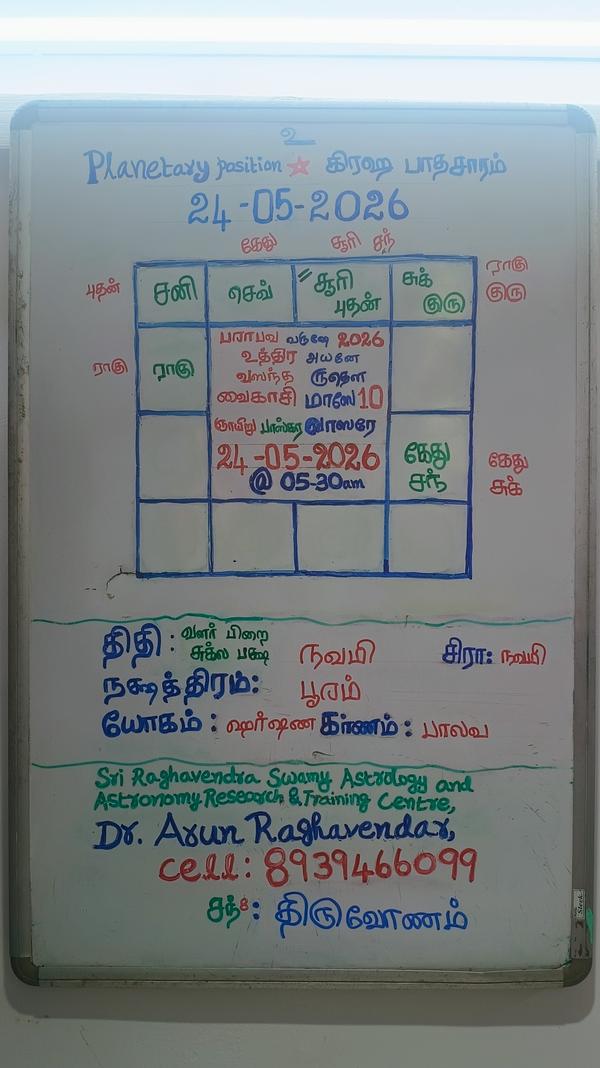 உ
Planetary position கிரஹ பாதசாரம்
24-05-2026
கேது சூரி சந்
புதன் சனி செவ் சூரி புதன் சுக் குரு ராகு குரு
ராகு ராகு
பராபவ வருஷே 2026
உத்திர அயனே
வஸந்த ருதௌ
வைகாசி மாஸே 10
ஞாயிறு பாஸ்கர வாஸரே
24-05-2026
@ 05-30am
கேது சந் கேது சுக்
திதி : வளர் பிறை சுக்ல பக்ஷ நவமி சிரா: நவமி
நக்ஷத்திரம்: பூரம்
யோகம் : ஹர்ஷண கர்ணம் : பாலவ
Sri Raghavendra Swamy Astrology and
Astronomy Research & Training Centre,
Dr. Arun Raghavendar,
cell: 8939466099
சந் 8: திருவோணம்